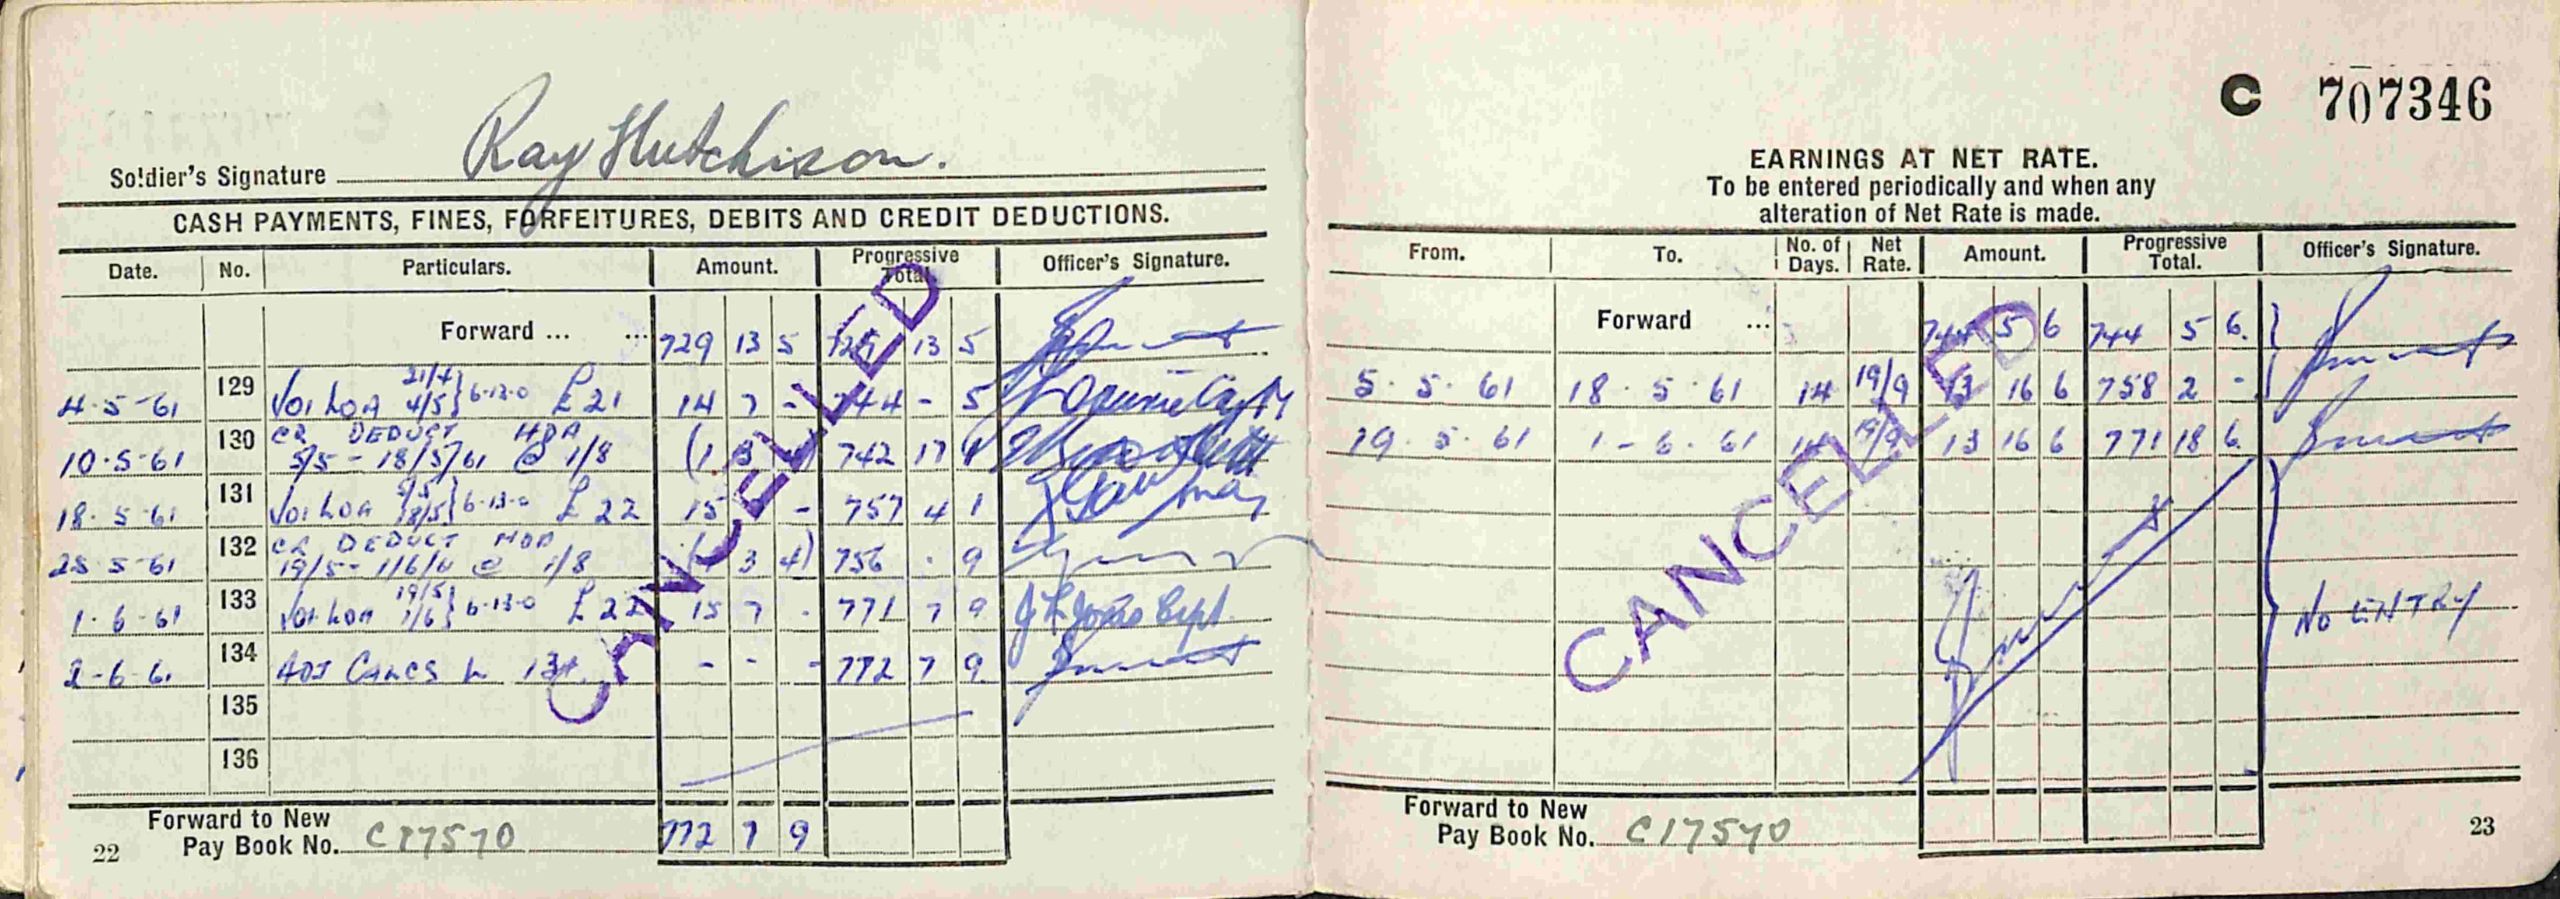 Ray Hutchison.
Soldier's Signature
CASH PAYMENTS, FINES, FORFEITURES, DEBITS AND CREDIT DEDUCTIONS.
Date. No. Particulars. Amount. Progressive Total. Officer's Signature.
Forward ... ... 729 13 5 729 13 5
4-5-61 129 Vol LOA 21/4 4/5 } 6-13-0 £21 14 7 - 744 - 5
10-5-61 130 CR DEDUCT HDA 5/5 - 18/5/61 @ 1/8 (1 3 4) 742 17 1
18-5-61 131 Vol LOA 5/5 18/5 } 6-13-0 £22 15 7 - 757 4 1
25-5-61 132 CR DEDUCT HDA 19/5 - 1/6/61 @ 1/8 (1 3 4) 756 - 9
1-6-61 133 Vol LOA 19/5 1/6 } 6-13-0 £22 15 7 - 771 7 9
2-6-61 134 ADJ 134 - - - 772 7 9
135
136
Forward to New
Pay Book No. C17570 772 7 9
22
CANCELLED
C 707346
EARNINGS AT NET RATE.
To be entered periodically and when any
alteration of Net Rate is made.
From. To. No. of Days. Net Rate. Amount. Progressive Total. Officer's Signature.
Forward ... 744 5 6 744 5 6
5.5.61 18.5.61 14 19/9 13 16 6 758 2 -
19.5.61 1-6.61 14 19/9 13 16 6 771 18 6
NO ENTRY
Forward to New
Pay Book No. C17570
23
CANCELLED